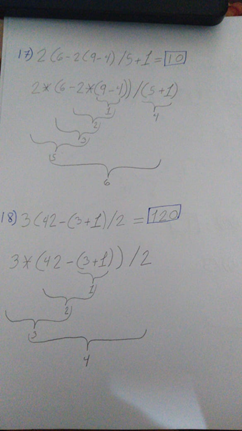 17) 2(6-2(9-4)/5+1=10
2*(6-2*(9-4))/(5+1)
1
2
4
3
5
6
18) 3(42-(3+1)/2=120
3*(42-(3+1))/2
1
2
3
4